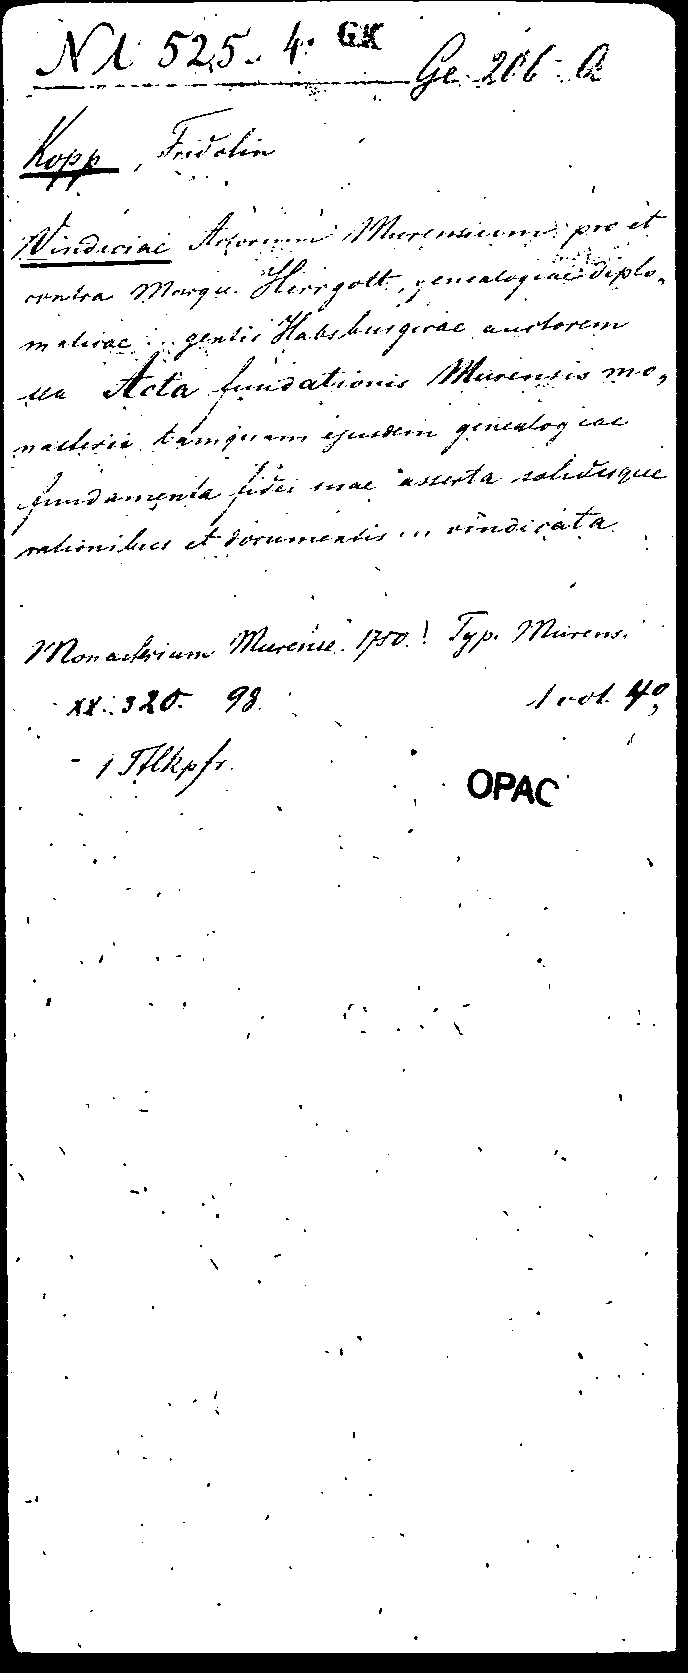 N1 525. 4. GK
Ge. 206. Q
Kopp, Fridolin
Vindiciae Actorum Murensium pro et
contra Marqu. Herrgott, genealogiae diplo-
maticae ... gentis Habsburgicae auctorem
seu Acta fundationis Murensis mo-
nasterii tamquam ejusdem genealogiae
fundamenta fidei suae asserta solidisque
rationibus et documentis ... vindicata.
Monasterium Murense. 1750. Typ. Murens.
XX. 320. 98. 1 vol. 4°
- 1 Tflkpfr.
OPAC